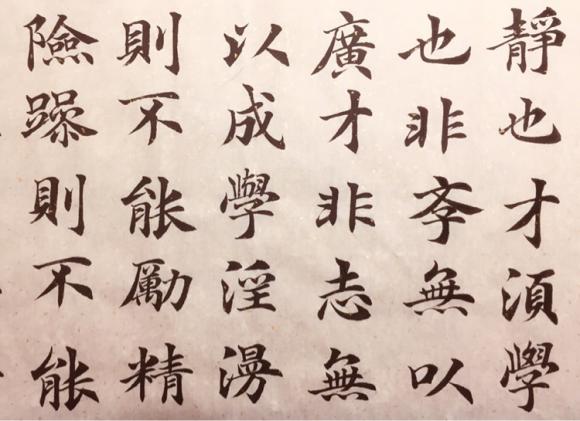 靜也才須學
也非斈無㕥
廣才非志無
以成學淫漫
則不能勵精
險躁則不能